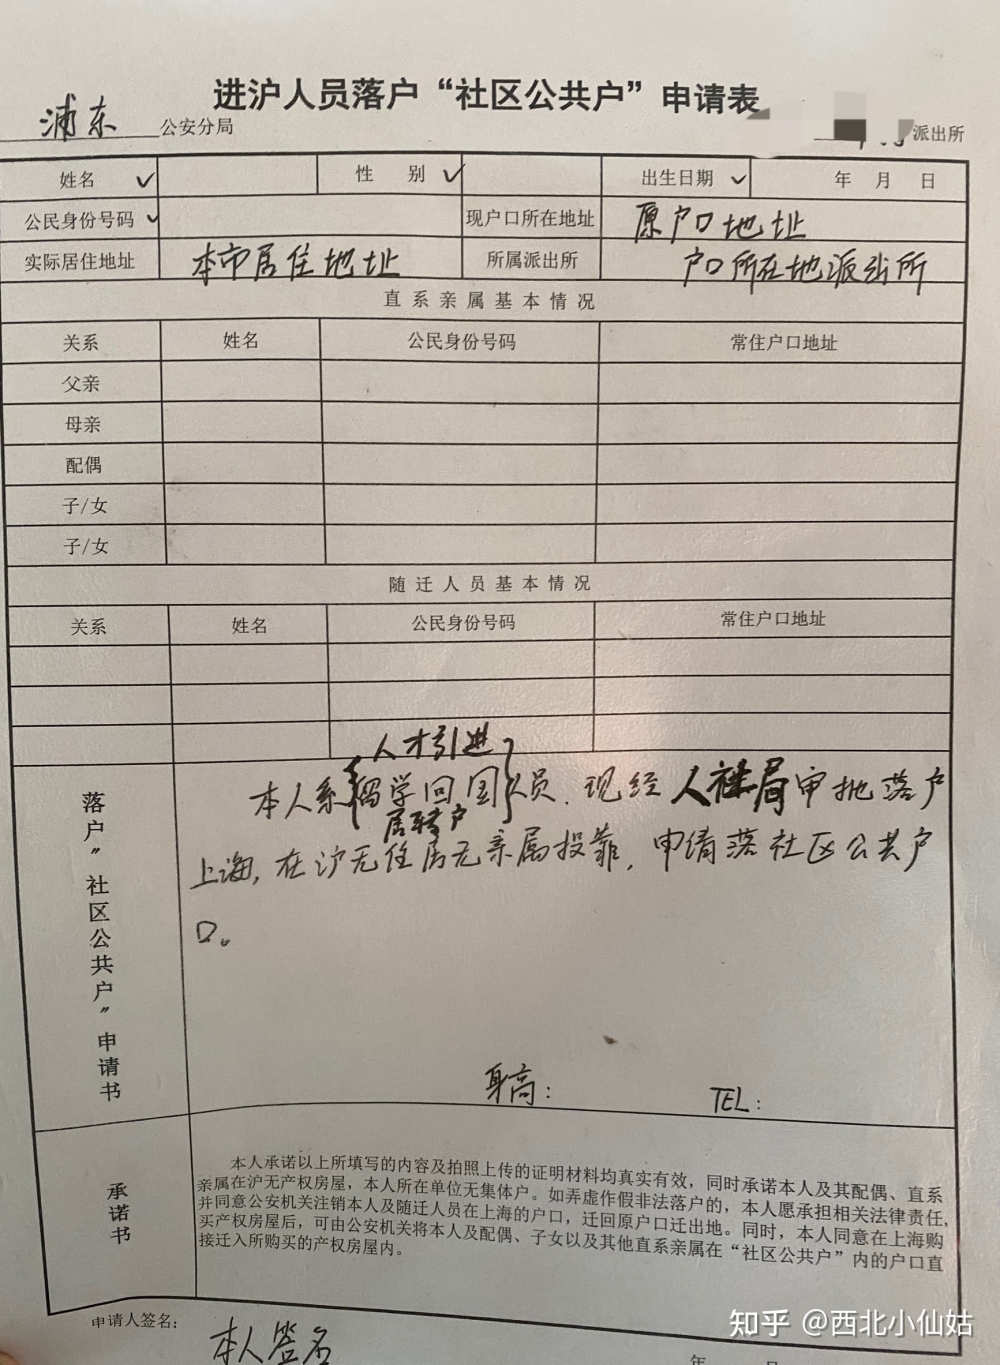 进沪人员落户“社区公共户”申请表
浦东 公安分局 派出所
姓名 ✓ 性 别 ✓ 出生日期 ✓ 年 月 日
公民身份号码 ✓ 现户口所在地址 原户口地址
实际居住地址 本市居住地址 所属派出所 户口所在地派出所
直系亲属基本情况
关系 姓名 公民身份号码 常住户口地址
父亲
母亲
配偶
子/女
子/女
随迁人员基本情况
关系 姓名 公民身份号码 常住户口地址
落户“社区公共户”申请书
人才引进
本人系{留学回国}人员.现经人社局审批落户
居转户
上海,在沪无住房无亲属投靠,申请落社区公共户
口。
身高: TEL:
承诺书
本人承诺以上所填写的内容及拍照上传的证明材料均真实有效，同时承诺本人及其配偶、直系
亲属在沪无产权房屋，本人所在单位无集体户。如弄虚作假非法落户的，本人愿承担相关法律责任，
并同意公安机关注销本人及随迁人员在上海的户口，迁回原户口迁出地。同时，本人同意在上海购
买产权房屋后，可由公安机关将本人及配偶、子女以及其他直系亲属在“社区公共户”内的户口直
接迁入所购买的产权房屋内。
申请人签名： 本人签名
年 月 日
知乎 @西北小仙姑